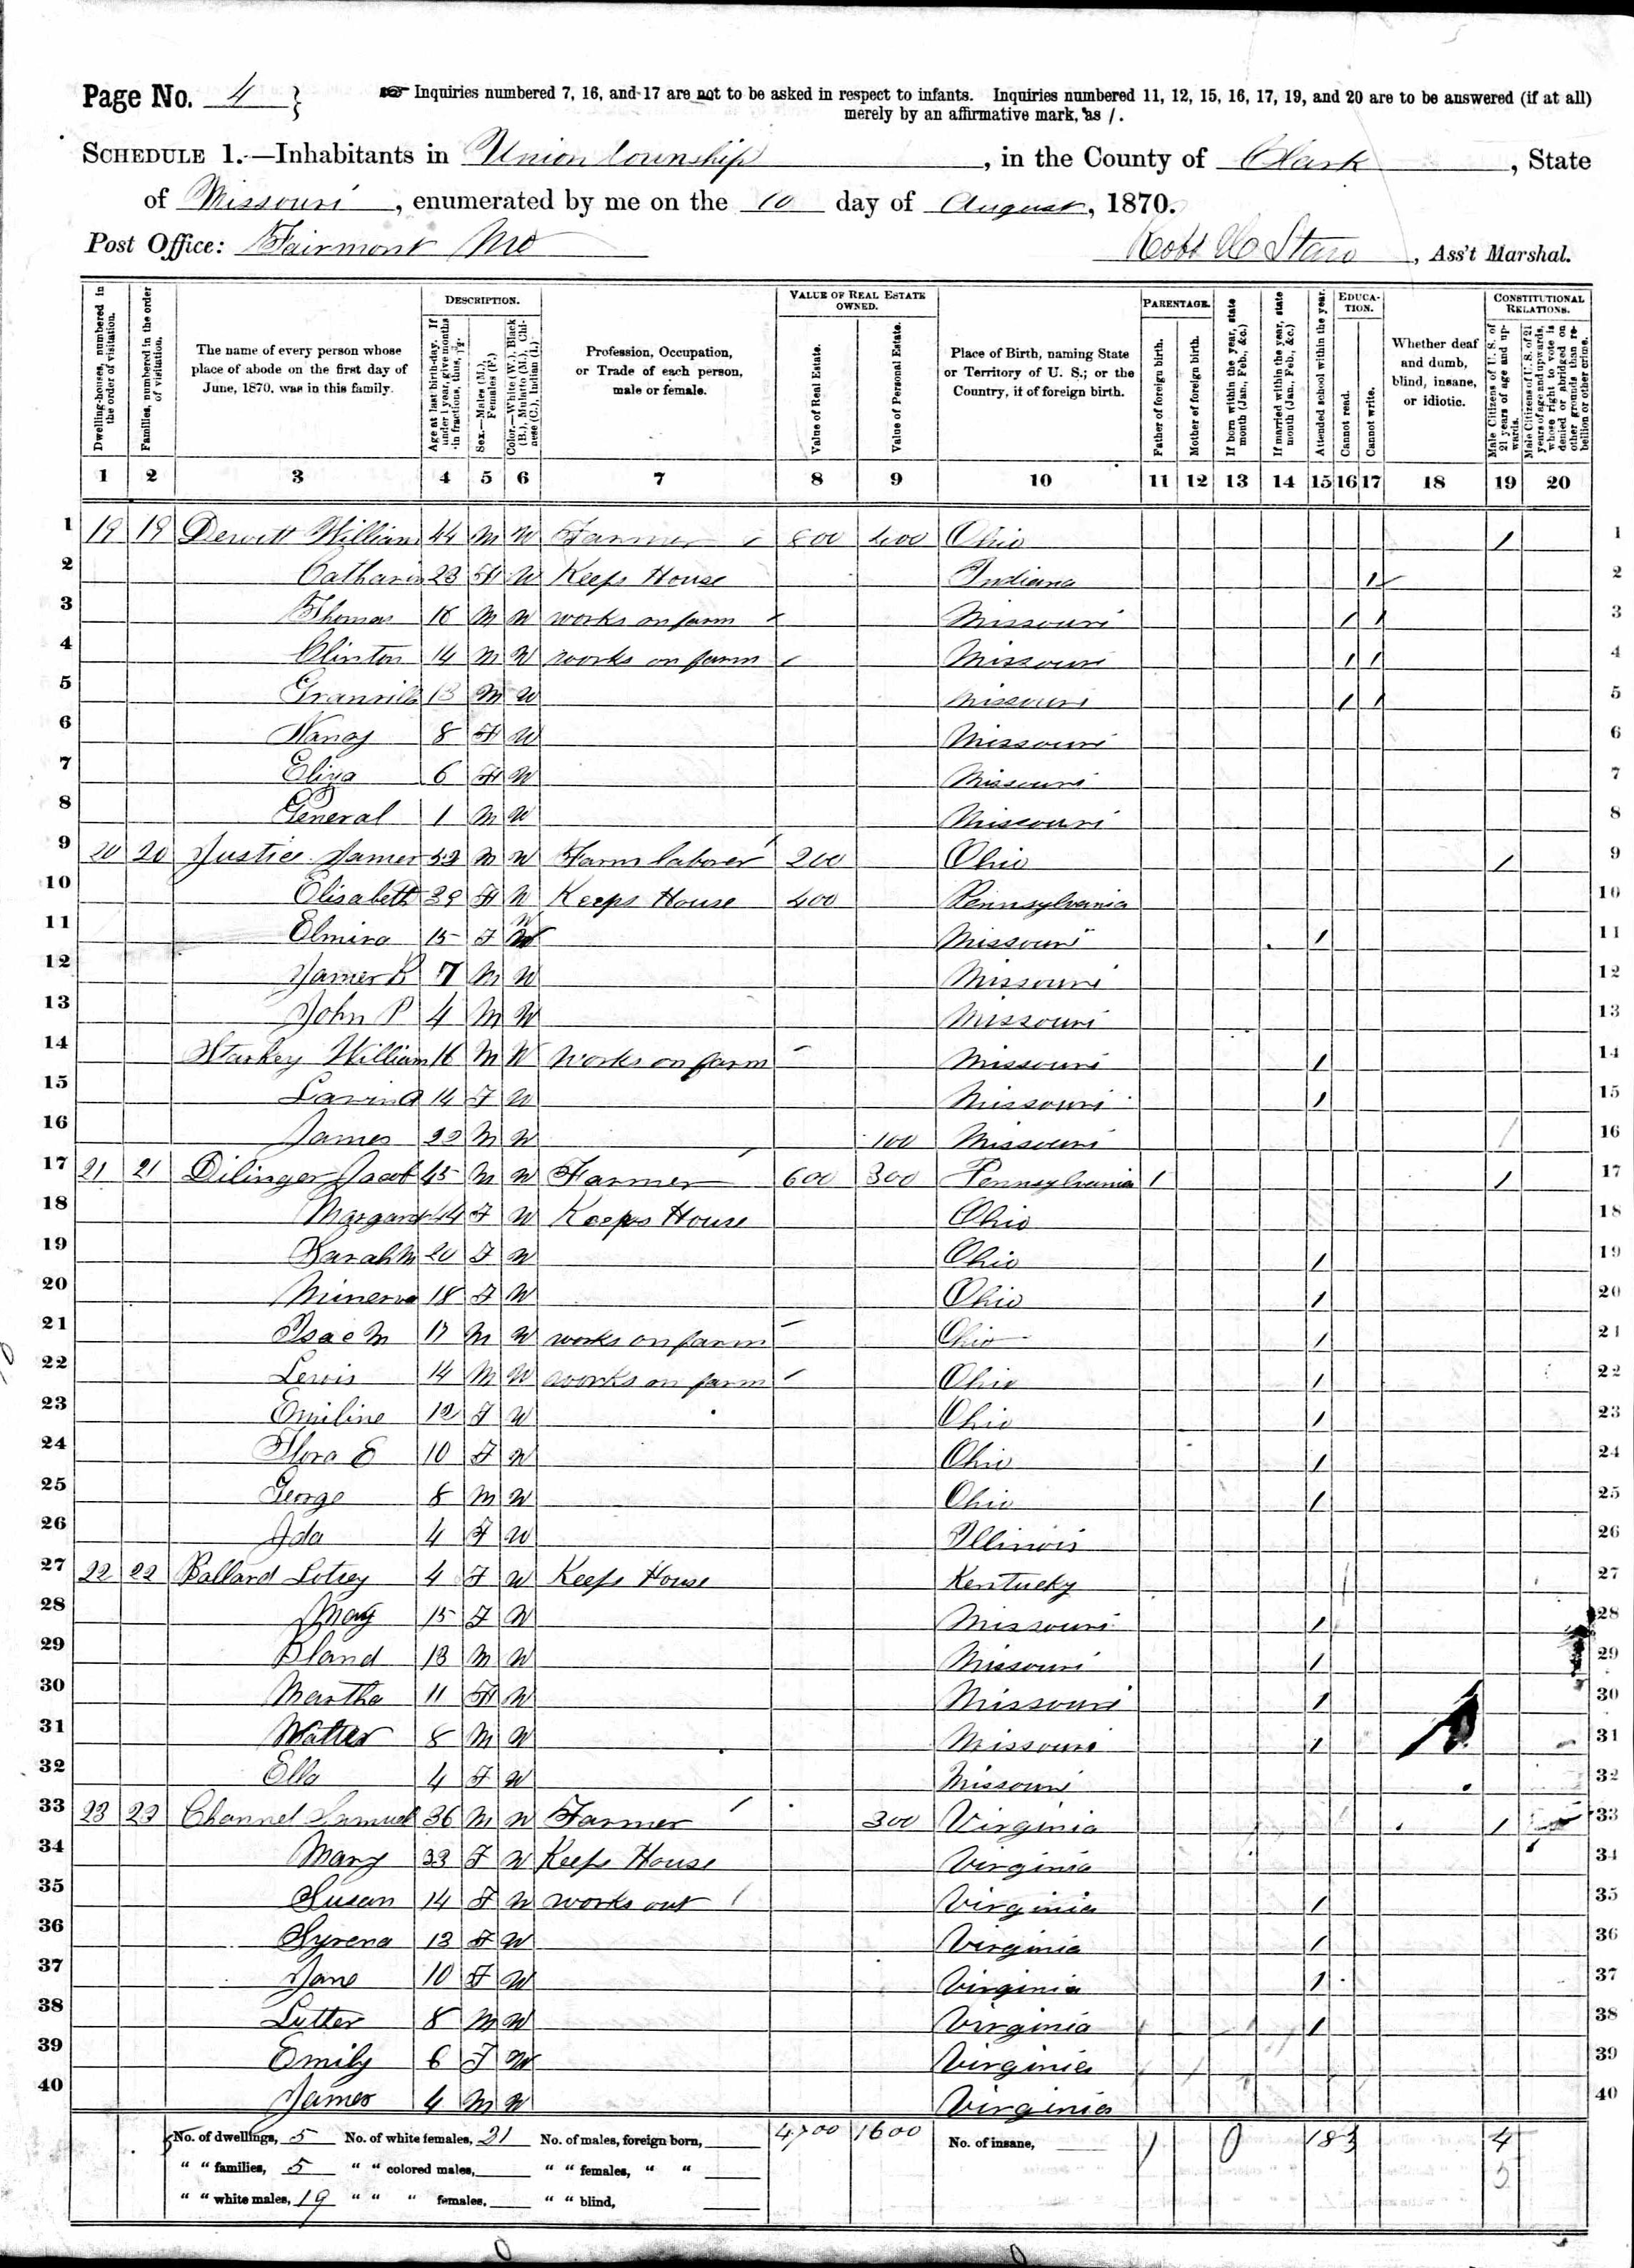 Page No. 4 }
☞ Inquiries numbered 7, 16, and 17 are not to be asked in respect to infants. Inquiries numbered 11, 12, 15, 16, 17, 19, and 20 are to be answered (if at all)
merely by an affirmative mark, as /.
SCHEDULE 1.—Inhabitants in Union township, in the County of Clark, State
of Missouri, enumerated by me on the 10 day of August, 1870.
Post Office: Fairmont Mo
Robt, Ass't Marshal.
Dwelling-houses, numbered in the order of visitation.
Families, numbered in the order of visitation.
The name of every person whose place of abode on the first day of June, 1870, was in this family.
DESCRIPTION.
Age at last birth-day. If under 1 year, give months in fractions, thus,
Sex.—Males (M.), Females (F.)
Color.—White (W.), Black (B.), Mulatto (M.), Chinese (C.), Indian (I.)
Profession, Occupation, or Trade of each person, male or female.
VALUE OF REAL ESTATE OWNED.
Value of Real Estate.
Value of Personal Estate.
Place of Birth, naming State or Territory of U. S.; or the Country, if of foreign birth.
PARENTAGE.
Father of foreign birth.
Mother of foreign birth.
If born within the year, state month (Jan., Feb., &c.)
If married within the year, state month (Jan., Feb., &c.)
Attended school within the year.
EDUCATION.
Cannot read.
Cannot write.
Whether deaf and dumb, blind, insane, or idiotic.
CONSTITUTIONAL RELATIONS.
Male Citizens of U. S. of 21 years of age and upwards.
Male Citizens of U. S. of 21 years of age and upwards, whose right to vote is denied or abridged on other grounds than rebellion or other crime.
1 2 3 4 5 6 7 8 9 10 11 12 13 14 15 16 17 18 19 20
1 19 19 Dewitt William 44 M W Farmer 800 400 Ohio / 1
2 Catharin 23 F W Keeps House Indiana / 2
3 Thomas M W works on farm Missouri / / 3
4 Clinton 14 M W works on farm Missouri / / 4
5 Granville 13 M W Missouri / / 5
6 Nancy 8 F W Missouri 6
7 Eliza 6 F W Missouri 7
8 General 1 M W Missouri 8
9 20 20 Justice James M W Farm laborer 200 Ohio / 9
10 Elisabeth 39 F W Keeps House 400 Pennsylvania 10
11 Elmira 15 F W Missouri / 11
12 James 7 M W Missouri 12
13 John P 4 M W Missouri 13
14 Starkey William 16 M W works on farm Missouri / 14
15 14 F W Missouri / 15
16 James 22 M W 100 Missouri / 16
17 21 21 Dilinger Jacob 45 M W Farmer 600 300 Pennsylvania / / 17
18 Margaret 44 F W Keeps House Ohio 18
19 Sarah M 20 F W Ohio / 19
20 Minerva 18 F W Ohio / 20
21 Isac M 17 M W works on farm Ohio / 21
22 Lewis 14 M W works on farm Ohio / 22
23 Emiline 12 F W Ohio / 23
24 Flora E 10 F W Ohio / 24
25 George 8 M W Ohio / 25
26 Ida 4 F W Illinois 26
27 22 22 Ballard Lotsey 4 F W Keeps House Kentucky / 27
28 May 15 F W Missouri / 28
29 Bland 13 M W Missouri / 29
30 Martha 11 F W Missouri / 30
31 Walter 8 M W Missouri / 31
32 Ella 4 F W Missouri 32
33 23 23 Channel Samuel 36 M W Farmer 300 Virginia / 33
34 Mary 33 F W Keeps House Virginia 34
35 Susan 14 F W works out Virginia / 35
36 Syrena 13 F W Virginia / 36
37 Jane 10 F W Virginia / 37
38 Lutter 8 M W Virginia / 38
39 Emily 6 F W Virginia 39
40 James 4 M W Virginia 40
No. of dwellings, 5 No. of white females, 21 No. of males, foreign born, 1600 No. of insane, 1 0 4
" " families, 5 " " colored males, " " females, " "
" " white males, 19 " " " females, " " blind,